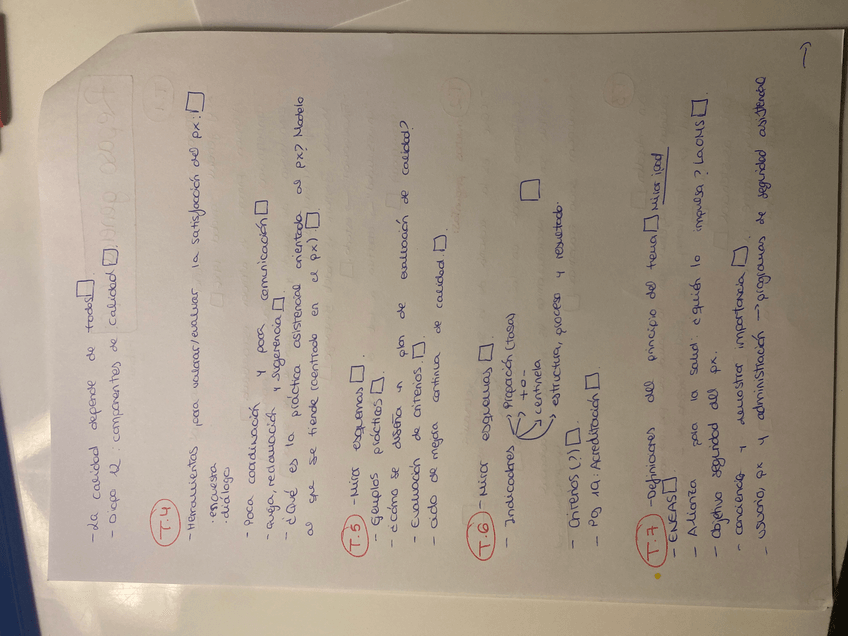 - La calidad depende de todos.
- Diapo 12: componentes de calidad.
T.4
- Herramientas para valorar/evaluar la satisfacción del px:
encuesta
· diálogo
- Poca coordinación y poca comunicación
- queja, reclamación y sugerencia
- ¿Qué es la práctica asistencial orientada al px? Modelo
al que se tiende (centrado en el px).
T.5 - Mirar esquemas
- Ejemplos prácticos
- ¿Cómo se diseña un plan de evaluación de calidad?
- Evaluación de criterios.
- ciclo de mejora continua de calidad.
T.6 - Mirar esquemas
- Indicadores → Proporción (tasa)
+ o -
centinela
estructura, proceso y resultado.
- Criterios (?)
- Pág 19: Acreditación
T.7 - Definiciones del principio del tema Mirar igual
- ENEAS
- Alianza para la salud: ¿quién lo impulsa? La OMS
- Objetivo seguridad del px.
- conciencia y demostrar importancia
- usuario, px y administración → programas de seguridad asistencial
→